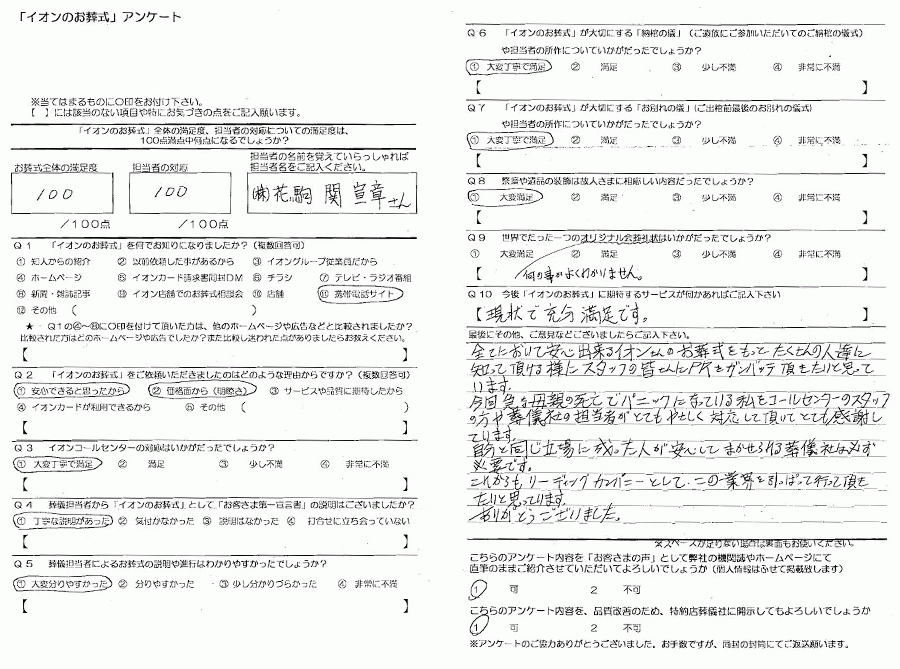 「イオンのお葬式」アンケート
※当てはまるものに○印をお付け下さい。
【 】には該当のない項目や特にお気づきの点をご記入願います。
「イオンのお葬式」全体の満足度、担当者の対応についての満足度は、
100点満点中何点になるでしょうか？
お葬式全体の満足度
担当者の対応
担当者の名前を覚えていらっしゃれば
担当者名をご記入ください。
100
100
㈱花駒 関 宣章さん
／100点
／100点
Q1 「イオンのお葬式」を何でお知りになりましたか？（複数回答可）
① 知人からの紹介 ② 以前依頼した事があるから ③ イオングループ従業員だから
④ ホームページ ⑤ イオンカード請求書同封DM ⑥ チラシ ⑦ テレビ・ラジオ番組
新聞・雑誌記事 イオン店舗でのお葬式相談会 店舗 携帯電話サイト
⑫ その他 （ ）
★・Q1の④～⑪に○印を付けて頂いた方は、他のホームページや広告などと比較されましたか？
比較された方はどのホームページや広告でしたか？また比較し迷われた点がありましたらお教えください。
【 】
Q2 「イオンのお葬式」をご依頼いただきましたのはどのような理由からですか？（複数回答可）
① 安心できると思ったから ② 価格面から（明瞭さ） ③ サービスや品質に期待したから
④ イオンカードが利用できるから ⑤ その他 （ ）
【 】
Q3 イオンコールセンターの対応はいかがだったでしょうか？
① 大変丁寧で満足 ② 満足 ③ 少し不満 ④ 非常に不満
【 】
Q4 葬儀担当者から「イオンのお葬式」として「お客さま第一宣言書」の説明はございましたか？
① 丁寧な説明があった ② 気付かなかった ③ 説明はなかった ④ 打合せに立ち会っていない
【 】
Q5 葬儀担当者によるお葬式の説明や進行はわかりやすかったでしょうか？
① 大変分りやすかった ② 分りやすかった ③ 少し分りづらかった ④ 非常に不満
【 】
Q6 「イオンのお葬式」が大切にする「納棺の儀」（ご遺族にご参加いただいてのご納棺の儀式）
や担当者の所作についていかがだったでしょうか？
① 大変丁寧で満足 ② 満足 ③ 少し不満 ④ 非常に不満
【 】
Q7 「イオンのお葬式」が大切にする「お別れの儀」（ご出棺前最後のお別れの儀式）
や担当者の所作についていかがだったでしょうか？
① 大変丁寧で満足 ② 満足 ③ 少し不満 ④ 非常に不満
【 】
Q8 祭壇や遺品の装飾は故人さまに相応しい内容だったでしょうか？
① 大変満足 ② 満足 ③ 少し不満 ④ 非常に不満
【 】
Q9 世界でたった一つのオリジナル会葬礼状はいかがだったでしょうか？
① 大変満足 ② 満足 ③ 少し不満 ④ 非常に不満
【 何の事かよくわかりません。 】
Q10 今後「イオンのお葬式」に期待するサービスが何かあればご記入下さい
【現状で充分満足です。 】
最後にその他、ご意見などございましたらご記入下さい。
全てにおいて安心出来るイオンさんのお葬式をもってたくさんの人達に
知って頂ける様にスタッフの皆さんにPRをガンバッテ頂きたいと思って
います。
今回急な母親の死亡でパニックになっている私をコールセンターのスタッフ
の方や葬儀社の担当者がとてもやさしく対応して頂いてとても感謝し
ています。
自分と同じ立場に成った人が安心してまかせられる葬儀社は必ず
必要です。
これからもリーディングカンパニーとして、この業界を引っぱって行って頂き
たいと思っています。
ありがとうございました。
※スペースが足りない場合は裏面もお使いください。
こちらのアンケート内容を「お客さまの声」として弊社の機関誌やホームページにて
直筆のままご紹介させていただいてよろしいでしょうか（個人情報はふせて掲載致します）
1 可 2 不可
こちらのアンケート内容を、品質改善のため、特約店葬儀社に開示してもよろしいでしょうか
1 可 2 不可
※アンケートのご協力ありがとうございました。お手数ですが、同封の封筒にてご返送願います。